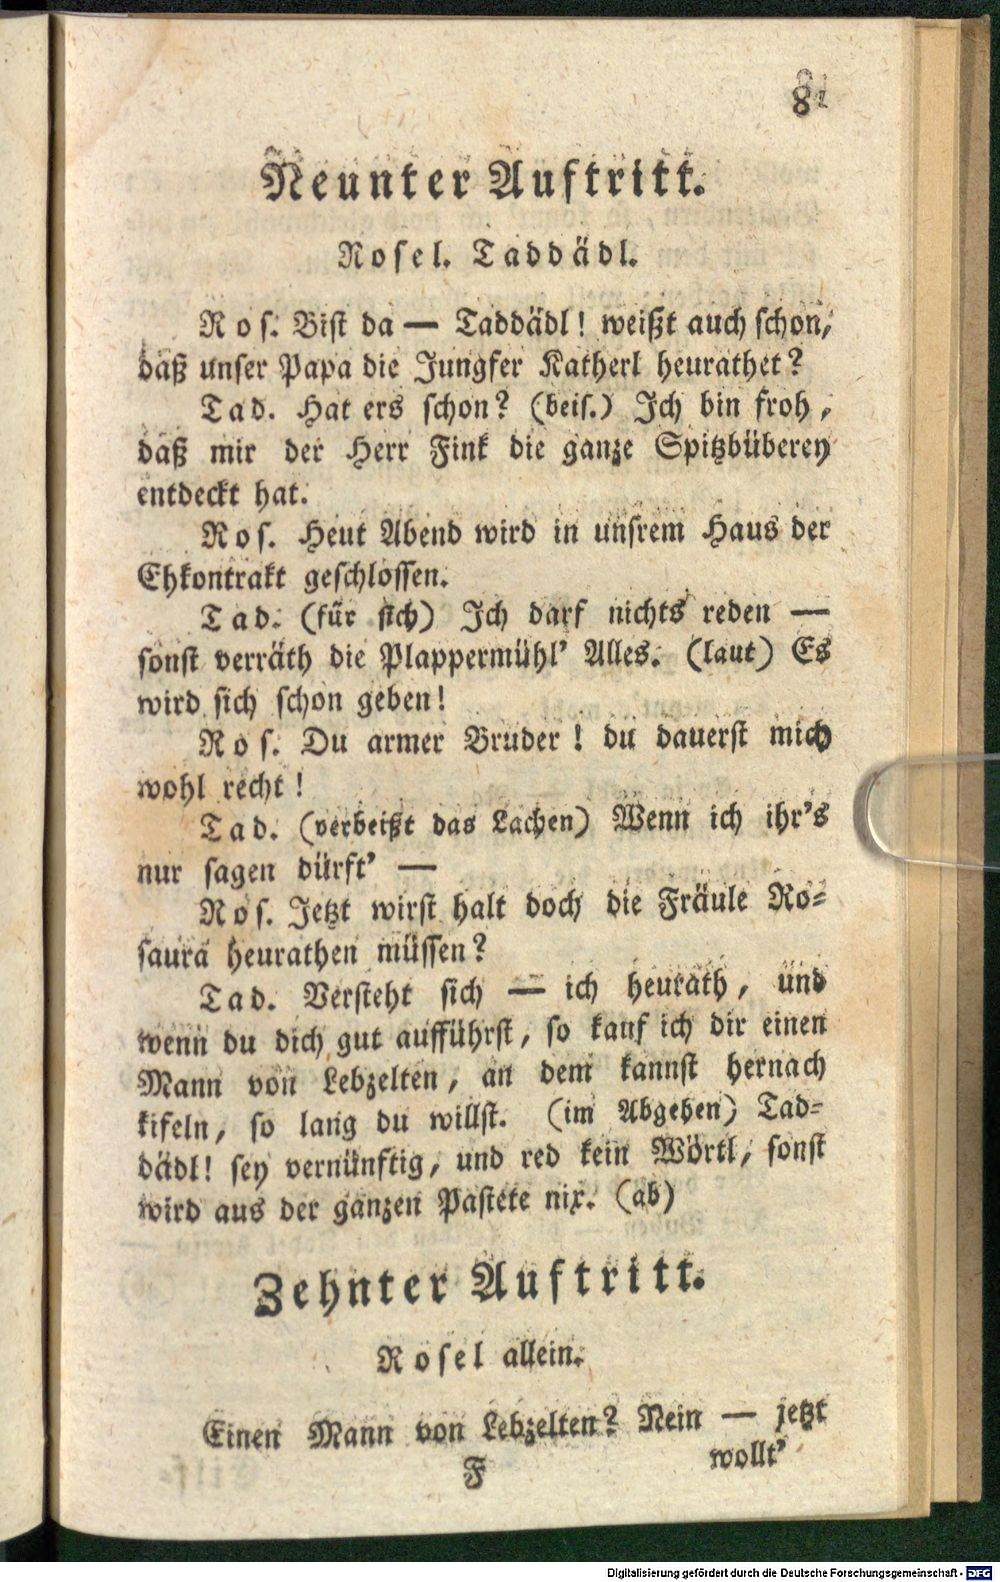 81
Neunter Auftritt.
Rosel. Taddädl.
Ros. Bist da — Taddädl! weißt auch schon,
daß unser Papa die Jungfer Katherl heurathet?
Tad. Hat ers schon? (beis.) Ich bin froh,
daß mir der Herr Fink die ganze Spitzbüberey
entdeckt hat.
Ros. Heut Abend wird in unsrem Haus der
Ehkontrakt geschlossen.
Tad. (für sich) Ich darf nichts reden —
sonst verräth die Plappermühl' Alles. (laut) Es
wird sich schon geben!
Ros. Du armer Bruder! du dauerst mich
wohl recht!
Tad. (verbeißt das Lachen) Wenn ich ihr's
nur sagen dürft' —
Ros. Jetzt wirst halt doch die Fräule Ro-
saura heurathen müssen?
Tad. Versteht sich — ich heurath, und
wenn du dich gut aufführst, so kauf ich dir einen
Mann von Lebzelten, an dem kannst hernach
kifeln, so lang du willst. (im Abgehen) Tad-
dädl! sey vernünftig, und red kein Wörtl, sonst
wird aus der ganzen Pastete nix. (ab)
Zehnter Auftritt.
Rosel allein.
Einen Mann von Lebzelten? Nein — jetzt
F wollt'
Digitalisierung gefördert durch die Deutsche Forschungsgemeinschaft - DFG